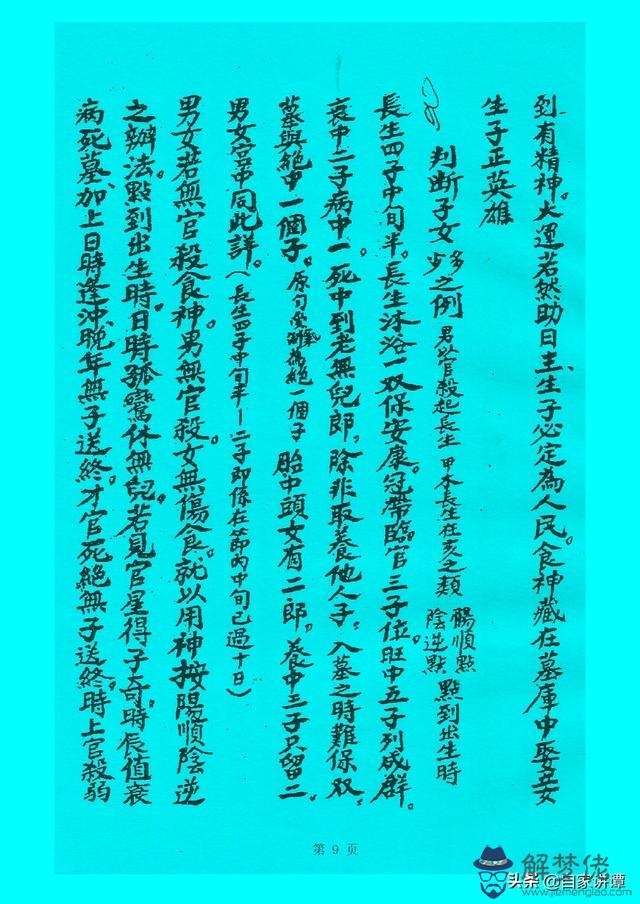 到有精神。大運若然助日主、生子必定為人民。食神藏在墓庫中娶妾
生子正英雄
判断子女多少之例 男以官殺起長生 甲木長生在亥之類 陽順點 陰逆點 點到出生時
長生四子中旬半。長生沐浴一双保安康。冠帶臨官三子位。旺中五子列成群。
衰中二子病中一。死中到老無兒郎。除非取養他人子。入墓之時難保双。
墓與絕中一個子。原句受 為絕一個子 胎中頭女有二郎。養中三子只留二。
男女宮中同此詳。(長生四子中旬半—二子即係在節內中旬已過十日)
男女若無官殺食神。男無官殺。女無傷食。就以用神按陽順陰逆
之辦法。點到出生時。日時孤鸞休無兒。若見官星得子奇。時辰值衰
病死墓、加上日時逢沖、晚年無子送終。才官死絕無子送終。時上官殺弱
第 9 页
解梦佬
www.jiemenglao.com
头条 @自家讲谭